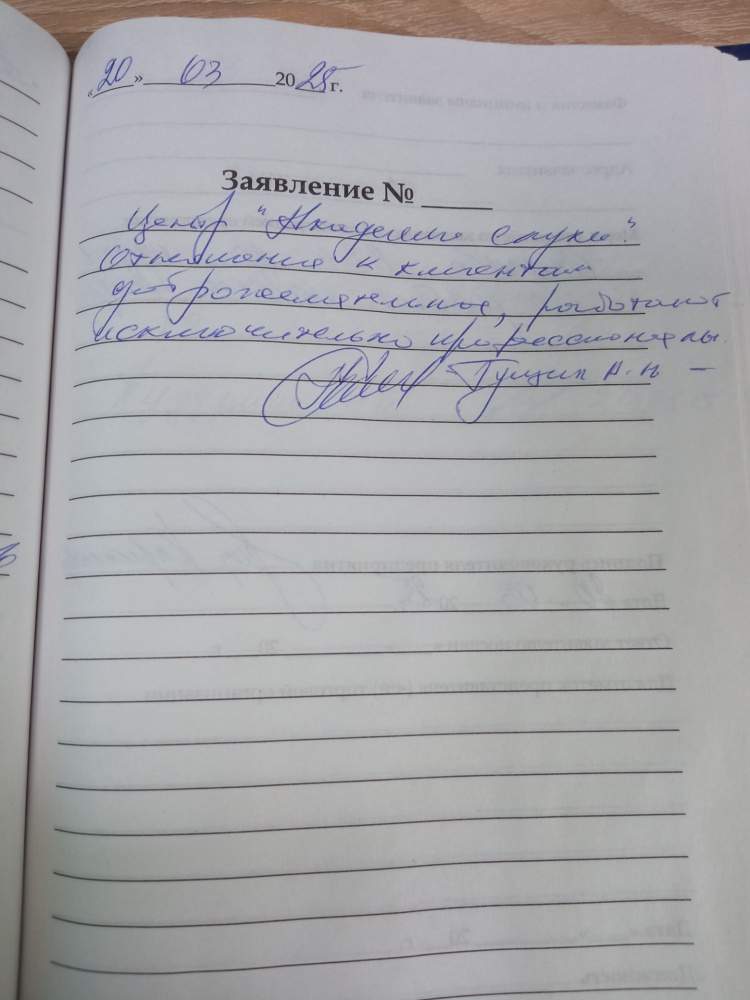 «20» 03 2025 г.
Заявление №
Центр "Академия слуха".
Отношение к клиентам
доброжелательное, работают
исключительно профессионалы.
Гущин А.Н